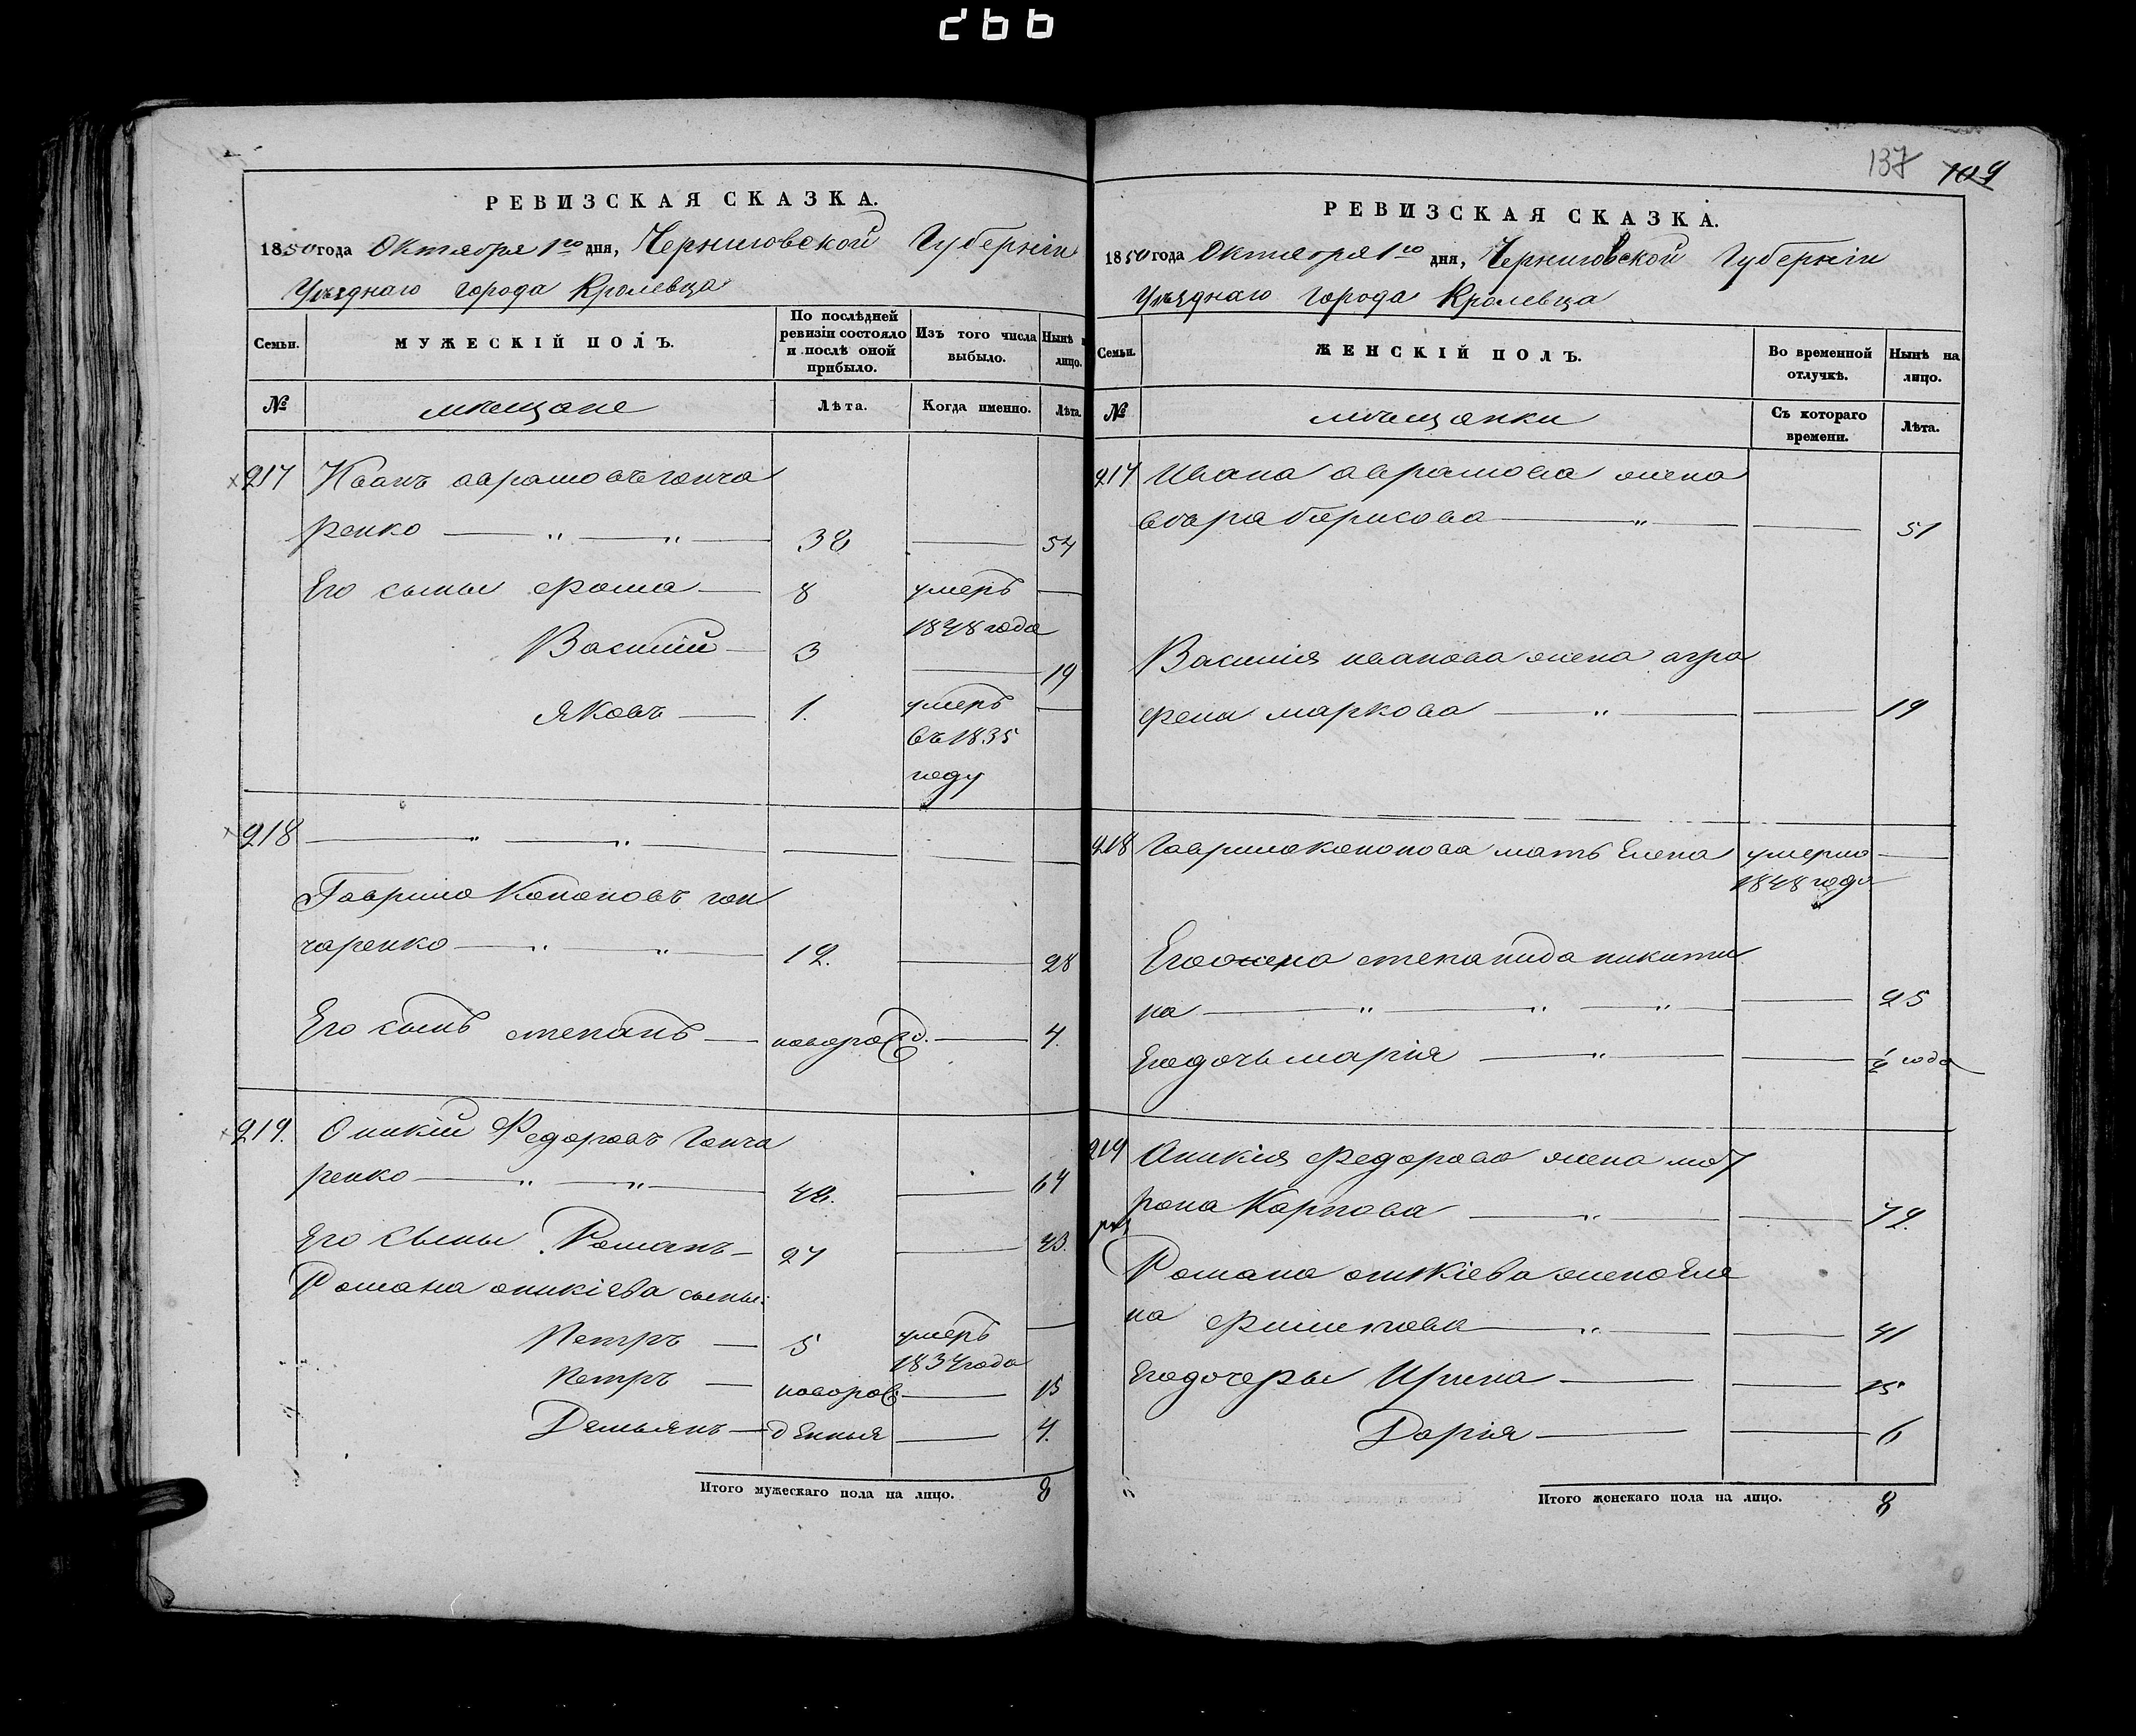 266
РЕВИЗСКАЯ СКАЗКА.
1850 года Октября 1го дня, Черниговской Губерніи
Уѣзднаго города Кролевца
Семьи.
МУЖЕСКІЙ ПОЛЪ.
По послѣдней ревизіи состояло и послѣ оной прибыло.
Изъ того числа выбыло.
Нынѣ на лицо.
№
мѣщане
Лѣта.
Когда именно.
Лѣта.
217 Иванъ аврамовъ гонча
ренко — " — " — 38 — 54
Его сыны Фома — 8 умеръ —
1848 года
Василій — 3 — 19
Яковъ — 1. умеръ —
въ 1835
году
218 — " — " — — — —
Гаврило Кононовъ гон
чаренко — " — " — 12. — 28
Его сынъ степанъ — новорожд. — 4.
219. Оникій Федоровъ Гонча
ренко — " — " — 48. — 64
Его Сыны Романъ — 27 — 43.
Романа оникіева сыны:
Петръ — 5 умеръ —
1834 года
Петръ — новорож — 15
Демьянъ — денныя — 4.
Итого мужескаго пола на лицо. 8
137 109
РЕВИЗСКАЯ СКАЗКА.
1850 года Октября 1го дня, Черниговской Губерніи
Уѣзднаго города Кролевца
Семьи.
ЖЕНСКІЙ ПОЛЪ.
Во временной отлучкѣ.
Нынѣ на лицо.
№
мѣщанки
Съ котораго времени.
Лѣта.
217 Ивана аврамова жена
вѣра борисова — " — — 51
Василія иванова жена агра
фена маркова — " — — 19
218 Гаврила кононова мать Елена умерла —
1848 года
Его жена степанида никити
на — " — " — " — — 25
Его дочь марія — " — — ½ года
219 Оникия федорова жена мот
рона Карпова — " — — 72.
Романа оникіева жена Еле
на Филипова — " — — 41
Его дочеры Ирина — — 15
Дарія — — 6
Итого женскаго пола на лицо. 8